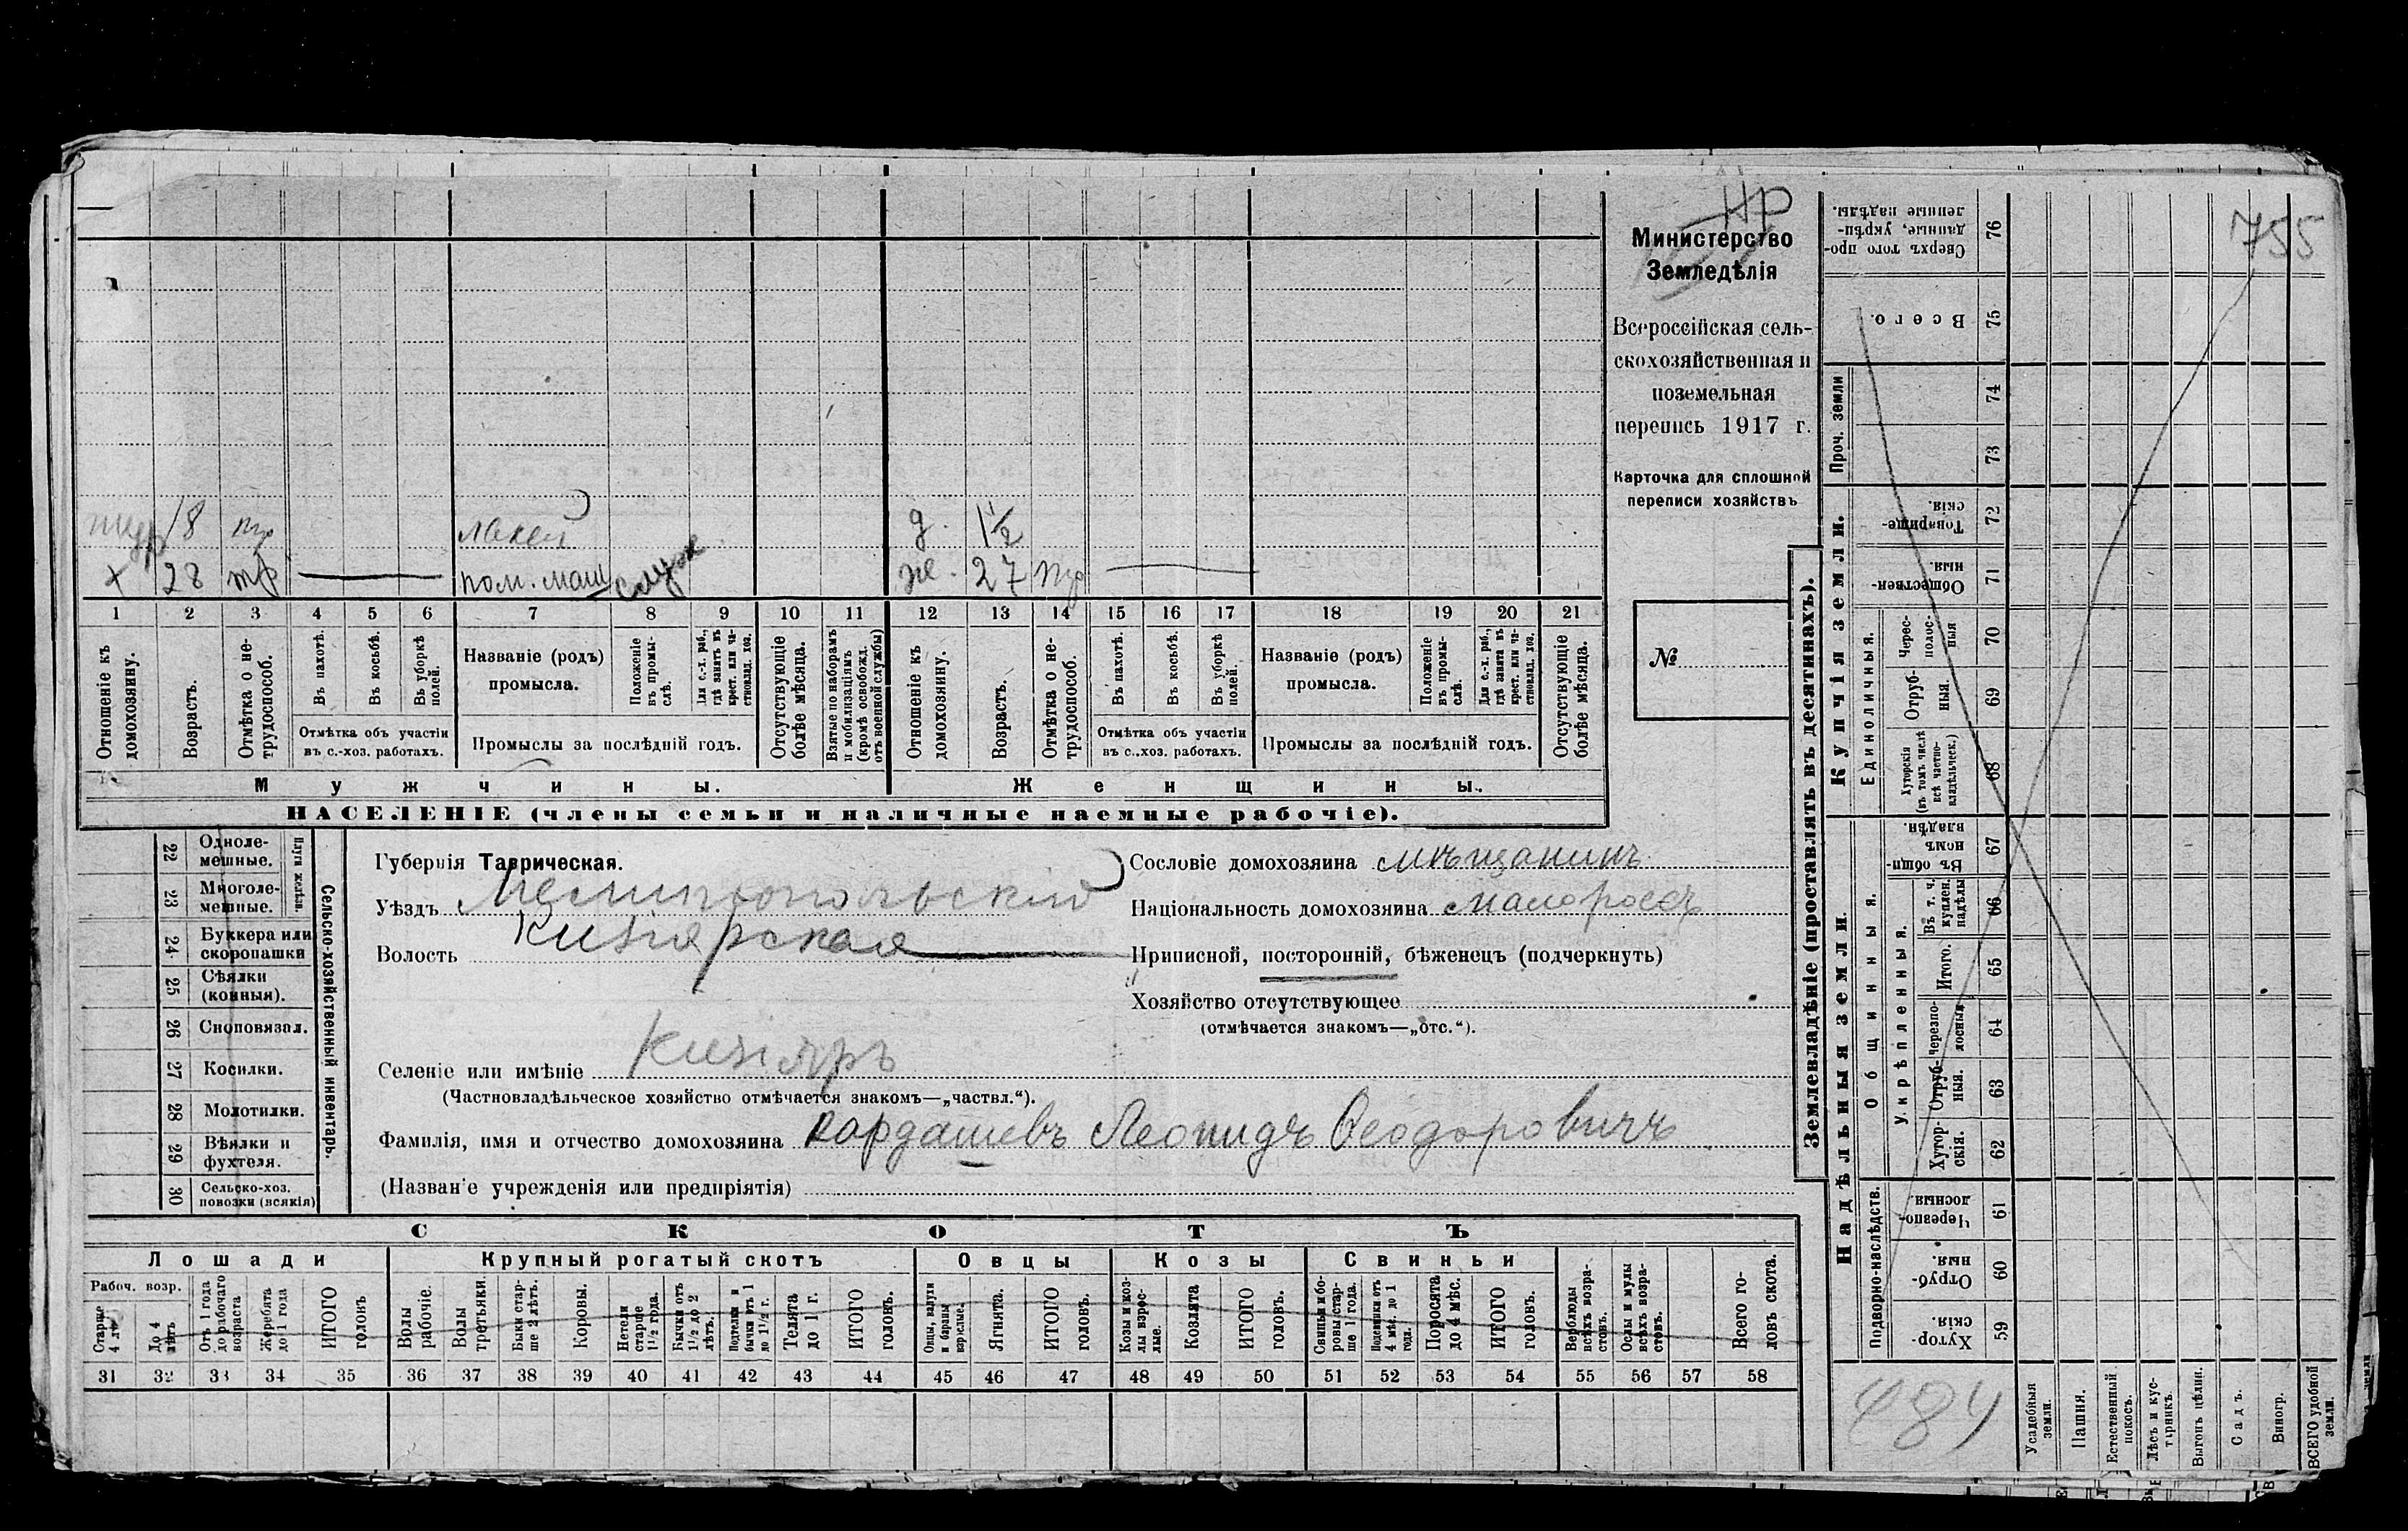 Нр
755
Министерство
Земледѣлія
Всероссійская сель-
скохозяйственная и
поземельная
перепись 1917 г.
Карточка для сплошной
переписи хозяйствъ
№
18 тр лакей д. 1 1/2
+ 28 тр пом. маш служ ж. 27 тр
1 2 3 4 5 6 7 8 9 10 11 12 13 14 15 16 17 18 19 20 21
Отношеніе къ домохозяину.
Возрастъ.
Отмѣтка о не-трудоспособ.
Въ пахотѣ.
Въ косьбѣ.
Въ уборкѣ полей.
Отмѣтка объ участіи въ с.-хоз. работахъ.
Названіе (родъ) промысла.
Положеніе въ промы-слѣ.
Для с.-х. раб., гдѣ занятъ въ крест. или ча-стновлад. хоз.
Промыслы за послѣдній годъ.
Отсутствующіе болѣе мѣсяца.
Взятые по наборамъ и мобилизаціямъ (кромѣ освобожд. отъ военной службы)
Отношеніе къ домохозяину.
Возрастъ.
Отмѣтка о не-трудоспособ.
Въ пахотѣ.
Въ косьбѣ.
Въ уборкѣ полей.
Отмѣтка объ участіи въ с.-хоз. работахъ.
Названіе (родъ) промысла.
Положеніе въ промы-слѣ.
Для с.-х. раб., гдѣ занята въ крест. или ча-стновлад. хоз.
Промыслы за послѣдній годъ.
Отсутствующіе болѣе мѣсяца.
Мужчины.
Женщины.
НАСЕЛЕНІЕ (члены семьи и наличные наемные рабочіе).
22 Одноле-мешные.
23 Многоле-мешные.
Плуги желѣзн.
24 Буккера или скоропашки
25 Сѣялки (конныя).
26 Сноповязал.
27 Косилки.
28 Молотилки.
29 Вѣялки и фухтеля.
30 Сельско-хоз. повозки (всякія)
Сельско-хозяйственный инвентарь.
Губернія Таврическая.
Уѣздъ Мелитопольскій
Волость Кизіярская
Селеніе или имѣніе Кизіяръ
(Частновладѣльческое хозяйство отмѣчается знакомъ—„частвл.“).
Фамилія, имя и отчество домохозяина Кардашевъ Леонидъ Ѳеодоровичъ
(Названіе учрежденія или предпріятія)
Сословіе домохозяина мѣщанинъ
Національность домохозяина малороссъ
Приписной, посторонній, бѣженецъ (подчеркнуть)
Хозяйство отсутствующее
(отмѣчается знакомъ—„отс.“).
СКОТЪ
Лошади
Крупный рогатый скотъ
Овцы
Козы
Свиньи
Рабоч. возр.
Старше 4 лѣтъ
До 4 лѣтъ
Отъ 1 года до рабочаго возраста
Жеребята до 1 года
ИТОГО головъ
Волы рабочіе.
Волы третьяки.
Быки стар-ше 2 лѣтъ.
Коровы.
Нетели старше 1 1/2 года.
Бычки отъ 1 1/2 до 2 лѣтъ.
Подтелки и бычки отъ 1 до 1 1/2 г.
Телята до 1 г.
ИТОГО головъ.
Овцы, валухи и бараны взрослые.
Ягнята.
ИТОГО головъ.
Козы и коз-лы взрос-лые.
Козлята
ИТОГО головъ.
Свиньи и бо-ровы стар-ше 1 года.
Подсвинки отъ 4 мѣс. до 1 года.
Поросята до 4 мѣс.
ИТОГО головъ.
Верблюды всѣхъ возра-стовъ.
Ослы и мулы всѣхъ возра-стовъ.
Всего го-ловъ скота.
31 32 33 34 35 36 37 38 39 40 41 42 43 44 45 46 47 48 49 50 51 52 53 54 55 56 57 58
Землевладѣніе (проставлять въ десятинахъ).
Сверхъ того про-данные, укрѣп-ленные надѣлы. 76
Всего. 75
Проч. земли 74
73
Купчія земли.
Товарище-скія. 72
Обществен-ныя. 71
Единоличныя.
Черес-полос-ныя 70
Отруб-ныя. 69
Хуторскія (въ томъ числѣ всѣ частно-владѣльческ.) 68
Надѣльныя земли.
Общинныя.
Въ общи-номъ владѣн. 67
Укрѣпленныя.
Въ т. ч. куплен. надѣлы 66
Итого. 65
Черезпо-лосныя 64
Отруб-ныя. 63
Хутор-скія. 62
Подворно-наслѣдств.
Черезпо-лосныя. 61
Отруб-ныя. 60
Хутор-скія. 59
484
Усадебныя земли.
Пашня.
Естественный покосъ.
Лѣсъ и кус-тарникъ.
Выгонъ цѣлин.
Садъ.
Виногр.
ВСЕГО удобной земли.